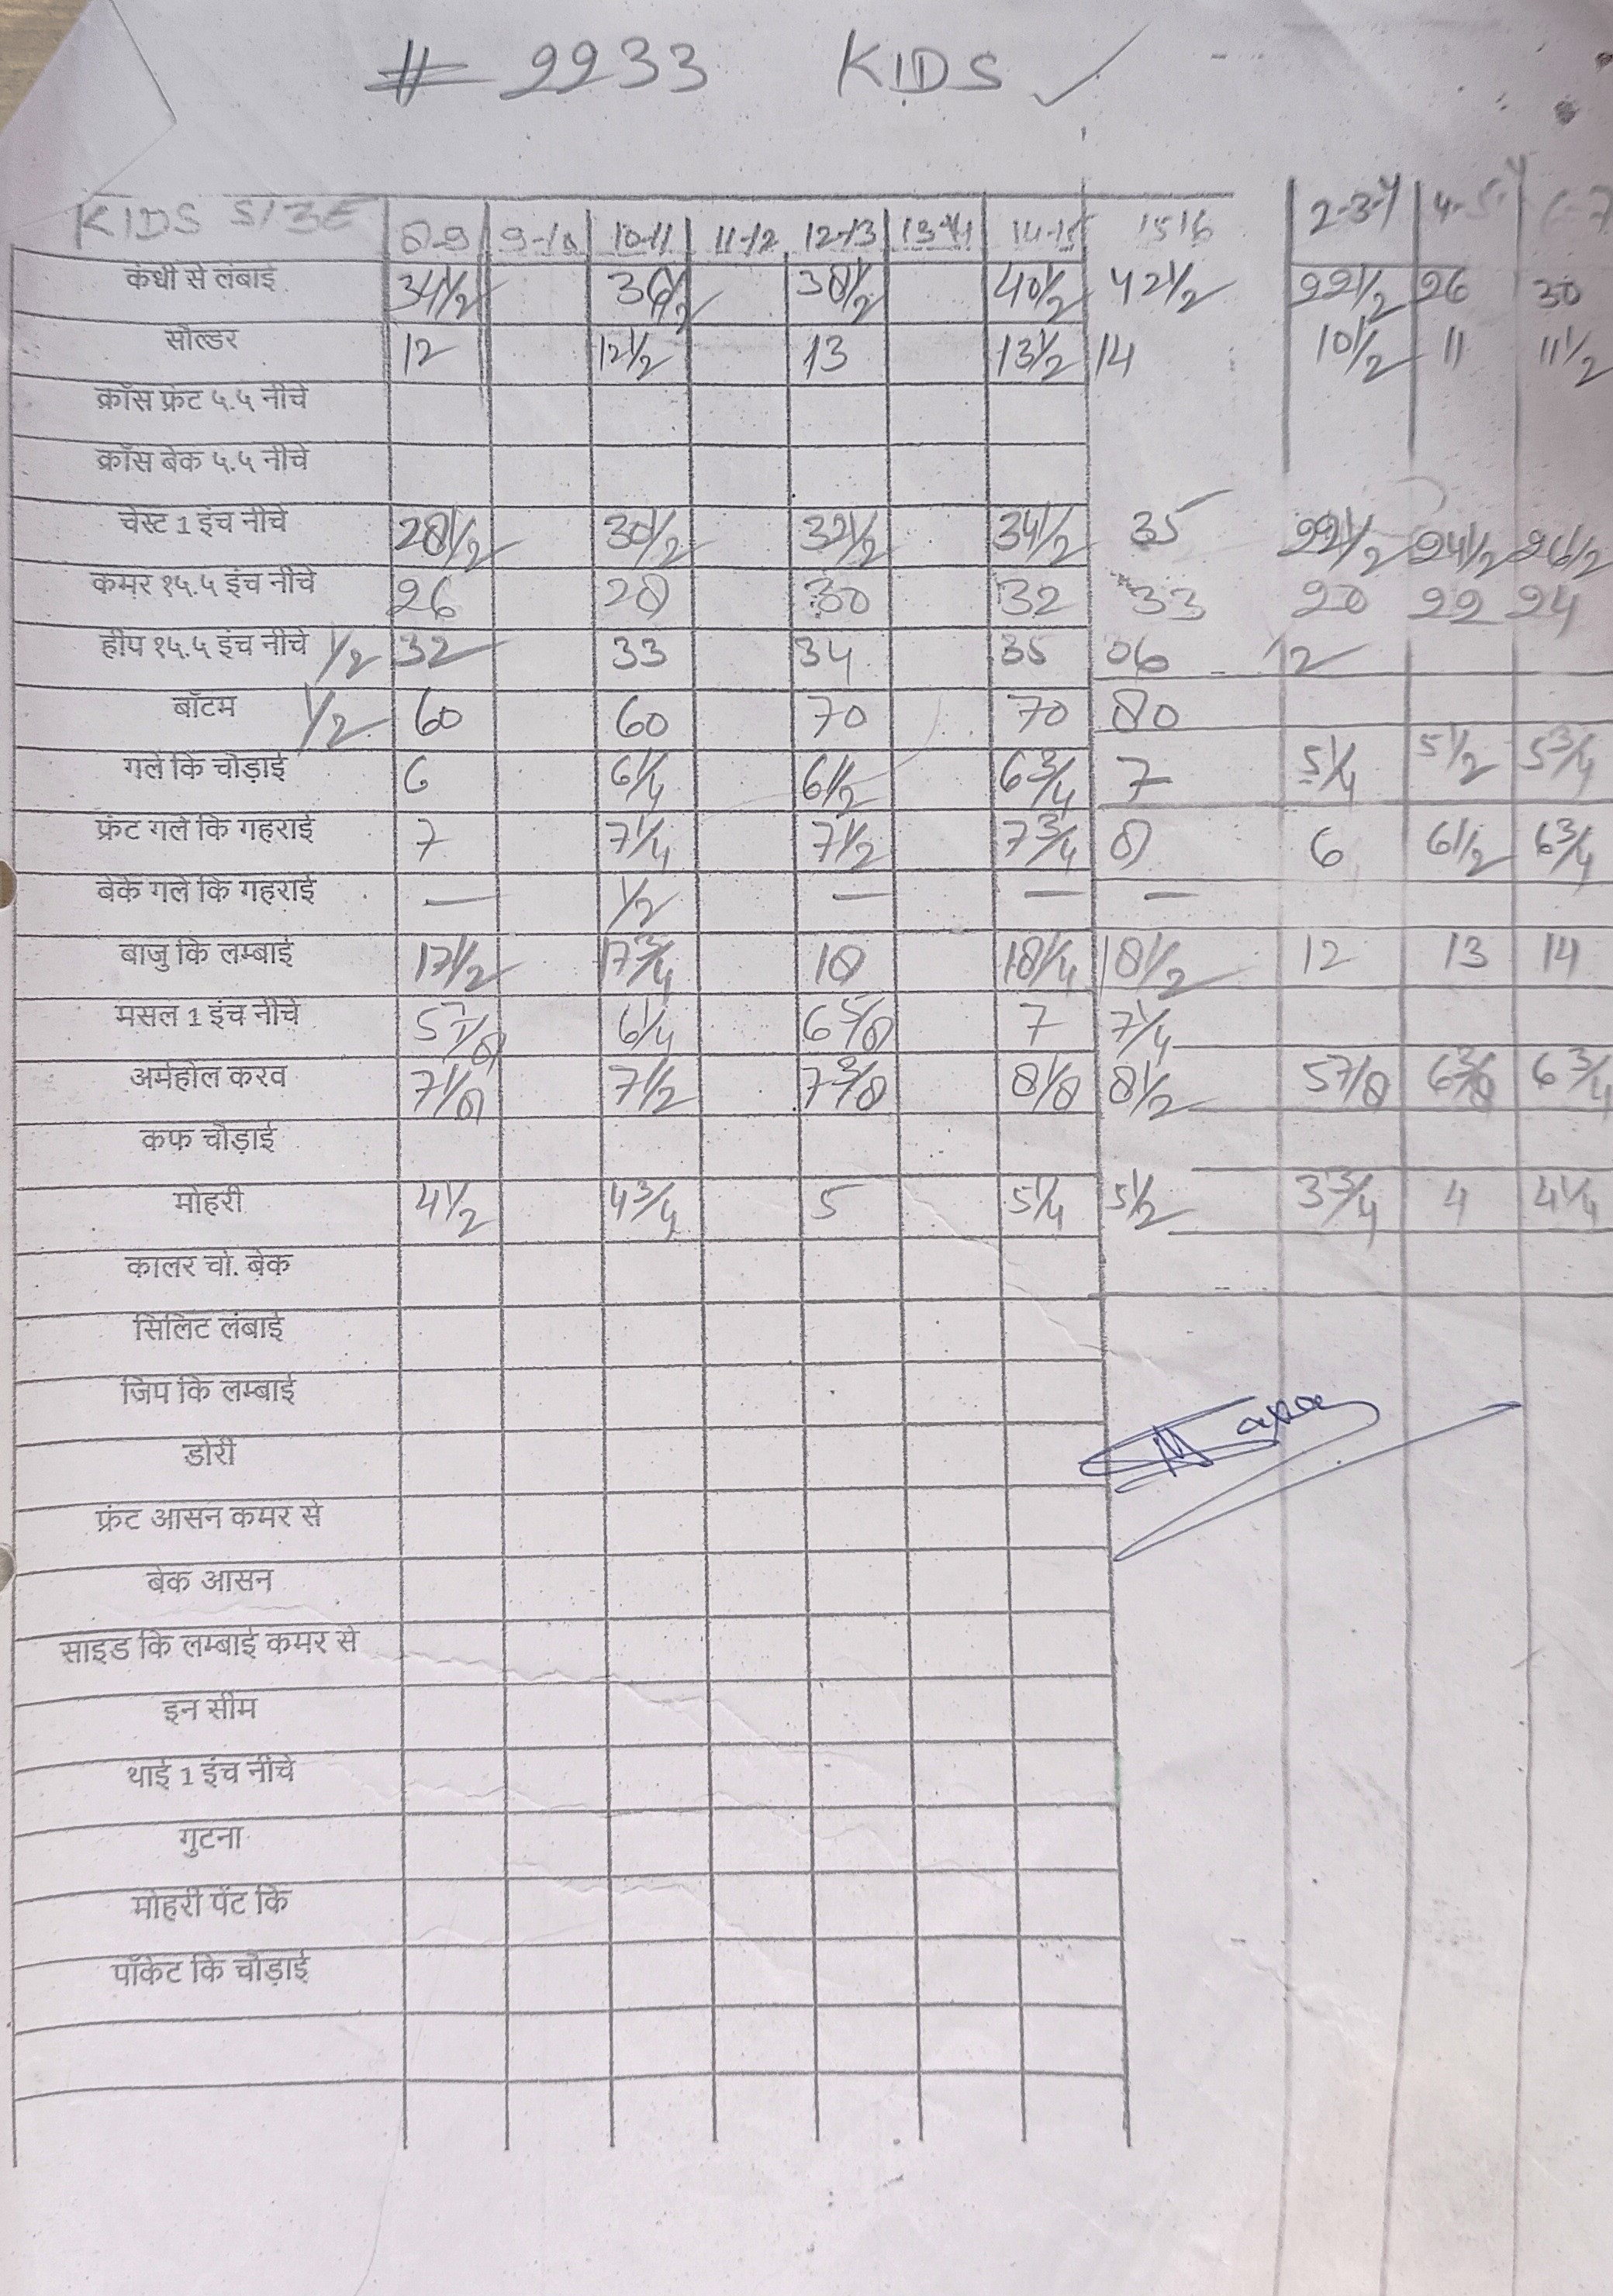 # 2233 KIDS ✓
KIDS SIZE 8-9 9-10 10-11 11-12 12-13 13-14 14-15 15 16 2-3-Y 4-5-Y 6-7
कंधी से लंबाई 34 1/2 36 1/2 38 1/2 40 1/2 42 1/2 22 1/2 26 30
सोल्डर 12 12 1/2 13 13 1/2 14 10 1/2 11 11 1/2
क्रॉस फ्रंट ५.५ नीचे
क्रॉस बेक ५.५ नीचे
चेस्ट 1 इंच नीचे 28 1/2 30 1/2 32 1/2 34 1/2 35 22 1/2 24 1/2 26 1/2
कमर १५.५ इंच नीचे 26 28 30 32 33 20 22 24
हीप १५.५ इंच नीचे 1/2 32 33 34 35 1/2
बॉटम 1/2 60 60 70 70 80
गले कि चौड़ाई 6 6 1/4 6 1/2 6 3/4 7 5 1/4 5 1/2 5 3/4
फ्रंट गले कि गहराई 7 7 1/4 7 1/2 7 3/4 8 6 6 1/2 6 3/4
बेके गले कि गहराई — 1/2 — — —
बाजु कि लम्बाई 17 1/2 17 3/4 18 18 1/4 18 1/2 12 13 14
मसल 1 इंच नीचे 5 7/8 6 1/4 6 5/8 7 7 1/4
अर्महोल करव 7 1/8 7 1/2 7 3/8 8 1/8 8 1/2 5 7/8 6 3/8 6 3/4
कफ चौड़ाई
मोहरी 4 1/2 4 3/4 5 5 1/4 5 1/2 3 3/4 4 4 1/4
कालर चो. बेक
सिलिट लंबाई
जिप कि लम्बाई
डोरी
फ्रंट आसन कमर से
बेक आसन
साइड कि लम्बाई कमर से
इन सीम
थाई 1 इंच नीचे
गुटना
मोहरी पेंट कि
पॉकेट कि चौड़ाई